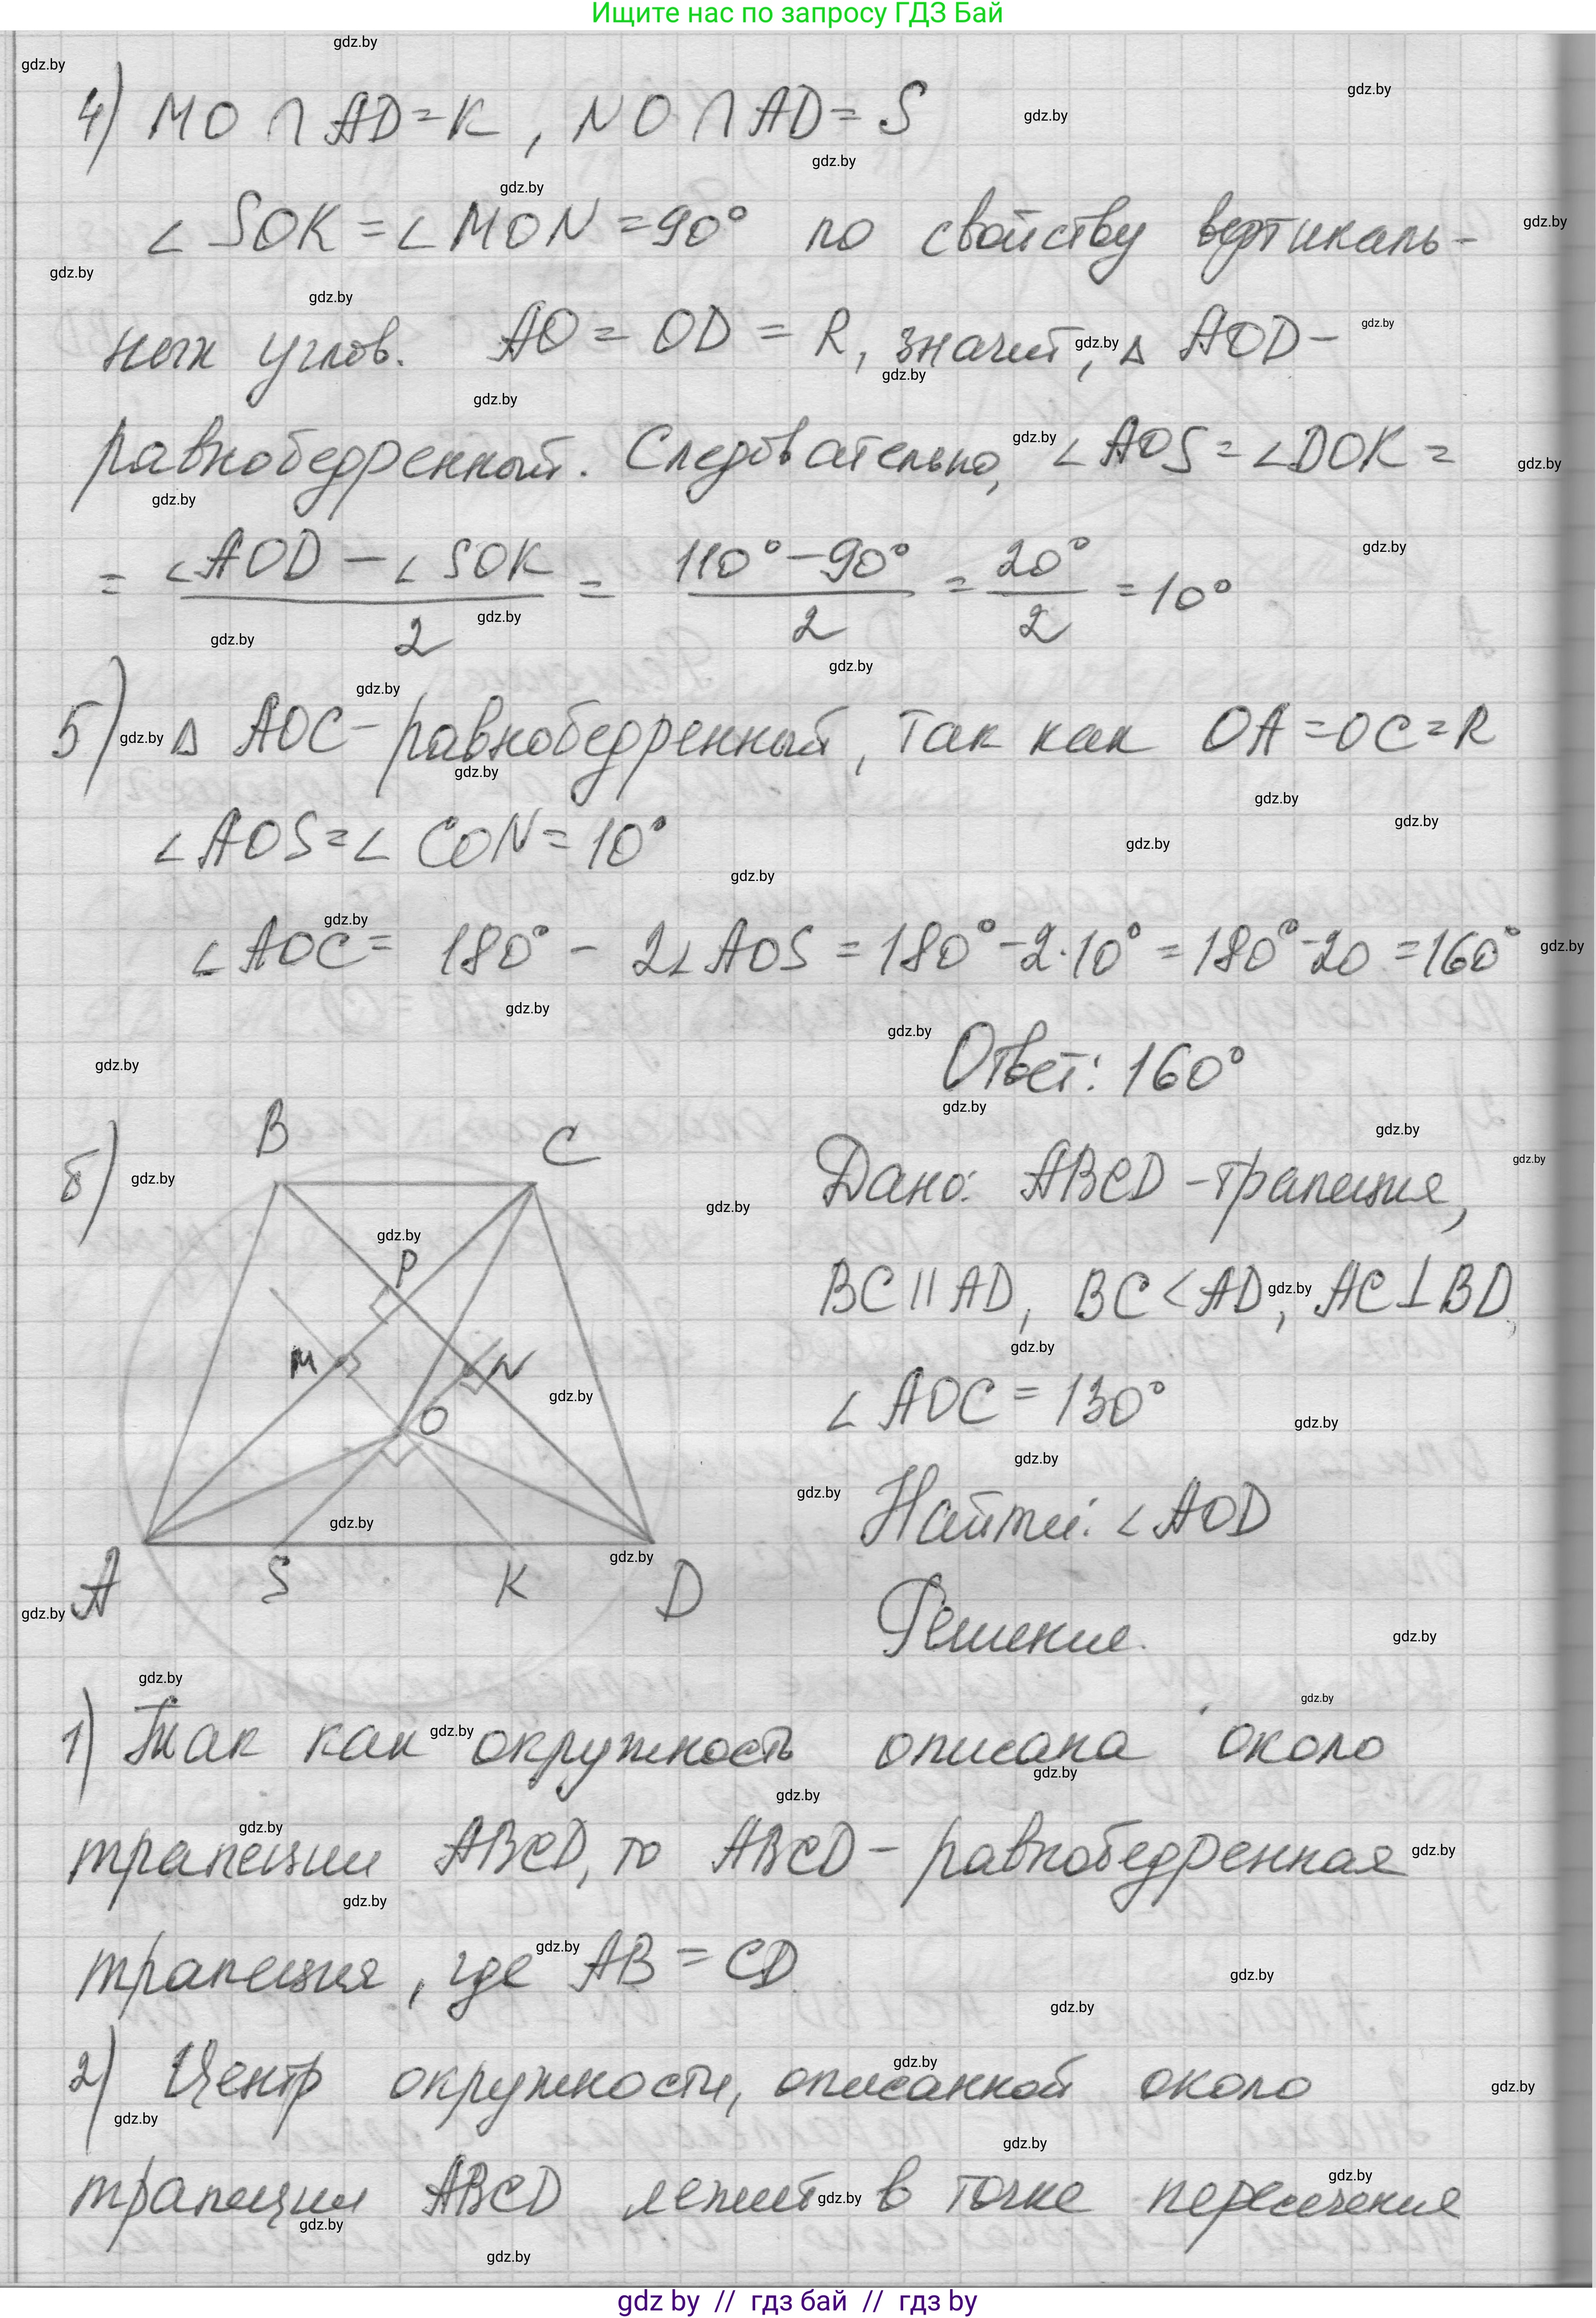 Ищите нас по запросу ГДЗ Бай
4) MO ∩ AD = K, NO ∩ AD = S
∠ SOK = ∠ MON = 90° по свойству вертикаль-
ных углов. AO = OD = R, значит, Δ AOD –
равнобедренный. Следовательно, ∠AOS = ∠DOK =
= (∠AOD – ∠SOK)/2 = (110° – 90°)/2 = 20°/2 = 10°
5) Δ AOC – равнобедренный, так как OA = OC = R
∠AOS = ∠ CON = 10°
∠AOC = 180° – 2∠AOS = 180° – 2·10° = 180° – 20 = 160°
Ответ: 160°
б)
B C
P
M N
O
A S K D
Дано: ABCD – трапеция,
BC || AD, BC < AD, AC ⊥ BD,
∠ AOC = 130°
Найти: ∠AOD
Решение.
1) Так как окружность описана около
трапеции ABCD, то ABCD – равнобедренная
трапеция, где AB = CD
2) Центр окружности, описанной около
трапеции ABCD лежит в точке пересечения
gdz by // гдз бай // гдз by